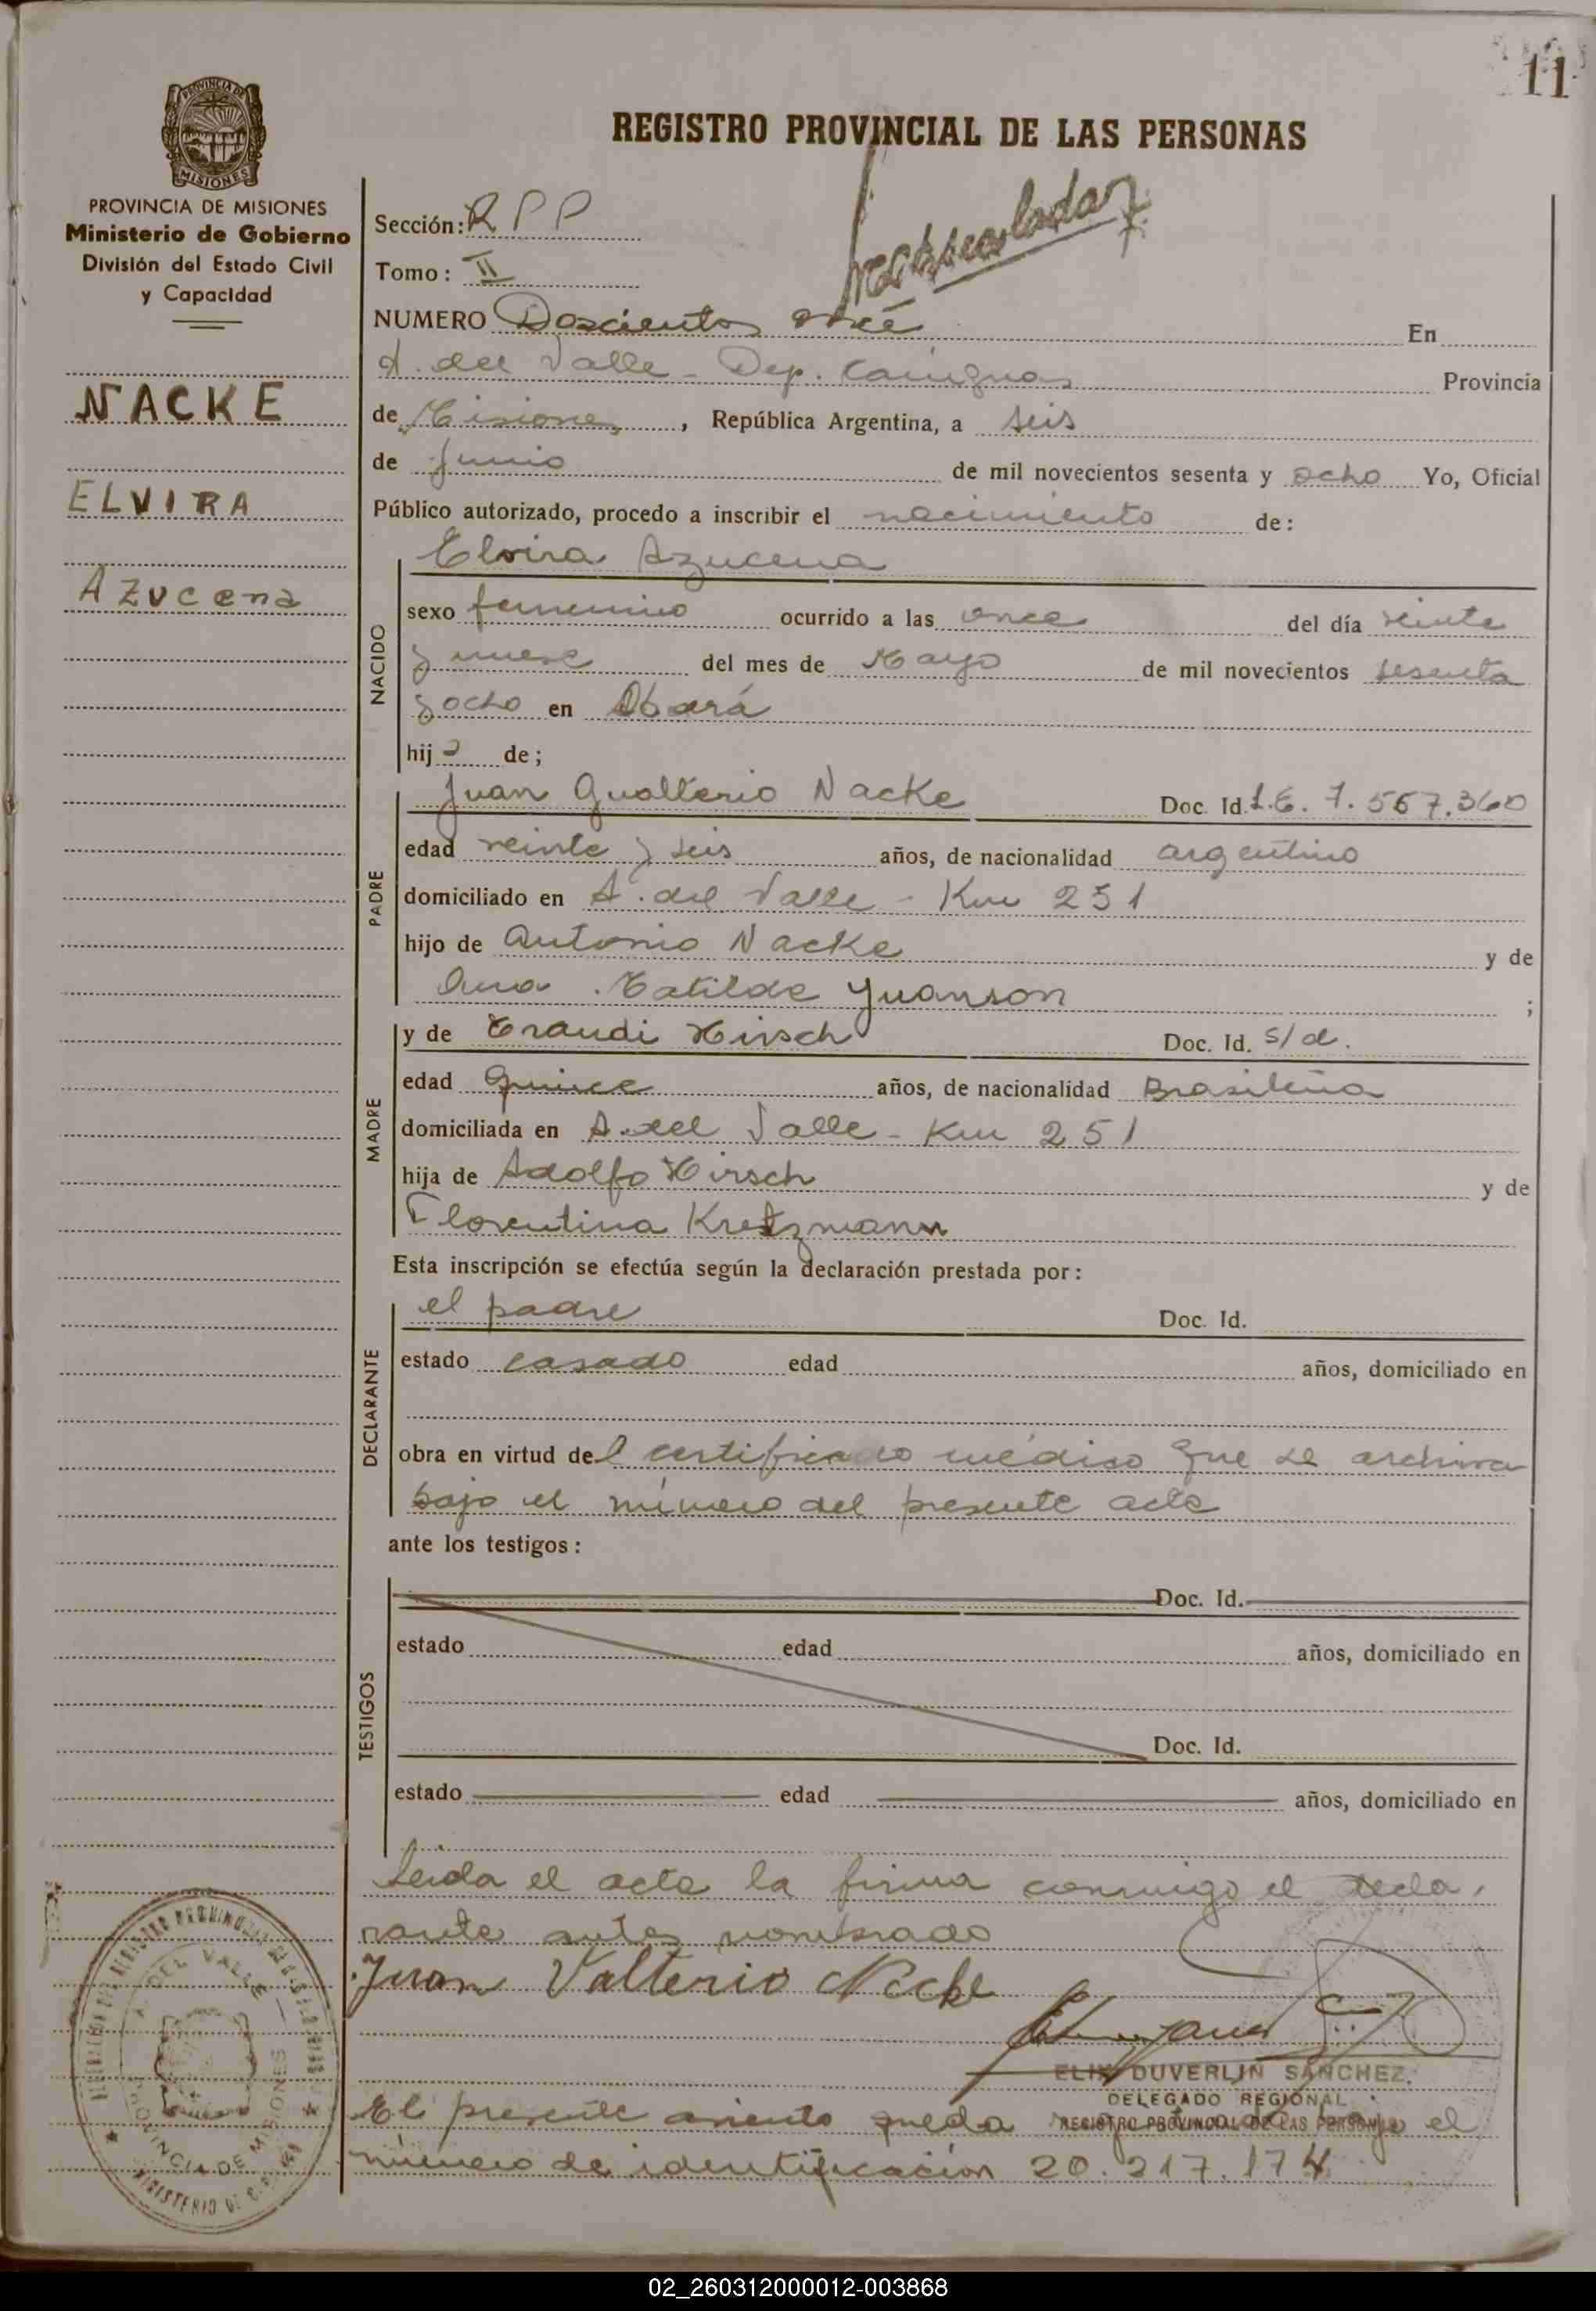 11
REGISTRO PROVINCIAL DE LAS PERSONAS
PROVINCIA DE MISIONES
Ministerio de Gobierno
División del Estado Civil
y Capacidad
NACKE
ELVIRA
AZUCENA
Sección: RPP
Tomo: II
NUMERO Doscientos En
A. del Valle - Dep. Cainguas Provincia
de Misiones, República Argentina, a seis
de Junio de mil novecientos sesenta y ocho Yo, Oficial
Público autorizado, procedo a inscribir el nacimiento de:
NACIDO
Elvira Azucena
sexo femenino ocurrido a las once del día veinte
y nueve del mes de Mayo de mil novecientos sesenta
y ocho en Oberá
hija de;
PADRE
Juan Gualterio Nacke Doc. Id. L.E. 7.567.360
edad veinte y seis años, de nacionalidad argentino
domiciliado en A. del Valle - Km 251
hijo de Antonio Nacke y de
Ana Matilde Yuanson ;
MADRE
y de Eraudi Hirsch Doc. Id. s/d.
edad quince años, de nacionalidad Brasileña
domiciliada en A. del Valle - Km 251
hija de Adolfo Hirsch y de
Florentina Kretzmann
Esta inscripción se efectúa según la declaración prestada por:
DECLARANTE
el padre Doc. Id.
estado casado edad años, domiciliado en
obra en virtud del certificado médico que se archiva
bajo el número del presente acta
ante los testigos:
TESTIGOS
Doc. Id.
estado edad años, domiciliado en
Doc. Id.
estado edad años, domiciliado en
Leida el acta la firma conmigo el decla-
rante antes nombrado
Juan Valterio Necke
ELIX DUVERLIN SANCHEZ
DELEGADO REGIONAL
REGISTRO PROVINCIAL DE LAS PERSONAS
El presente asiento queda bajo el
número de identificación 20.217.174
02_260312000012-003868